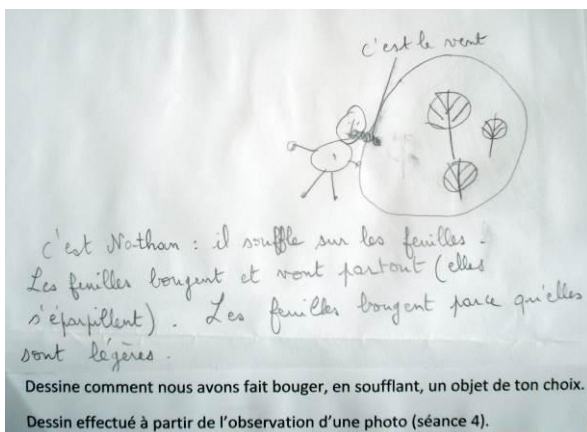 c'est le vent
c'est Nathan : il souffle sur les feuilles.
Les feuilles bougent et vont partout (elles
s'éparpillent). Les feuilles bougent parce qu'elles
sont légères.
Dessine comment nous avons fait bouger, en soufflant, un objet de ton choix.
Dessin effectué à partir de l'observation d'une photo (séance 4).